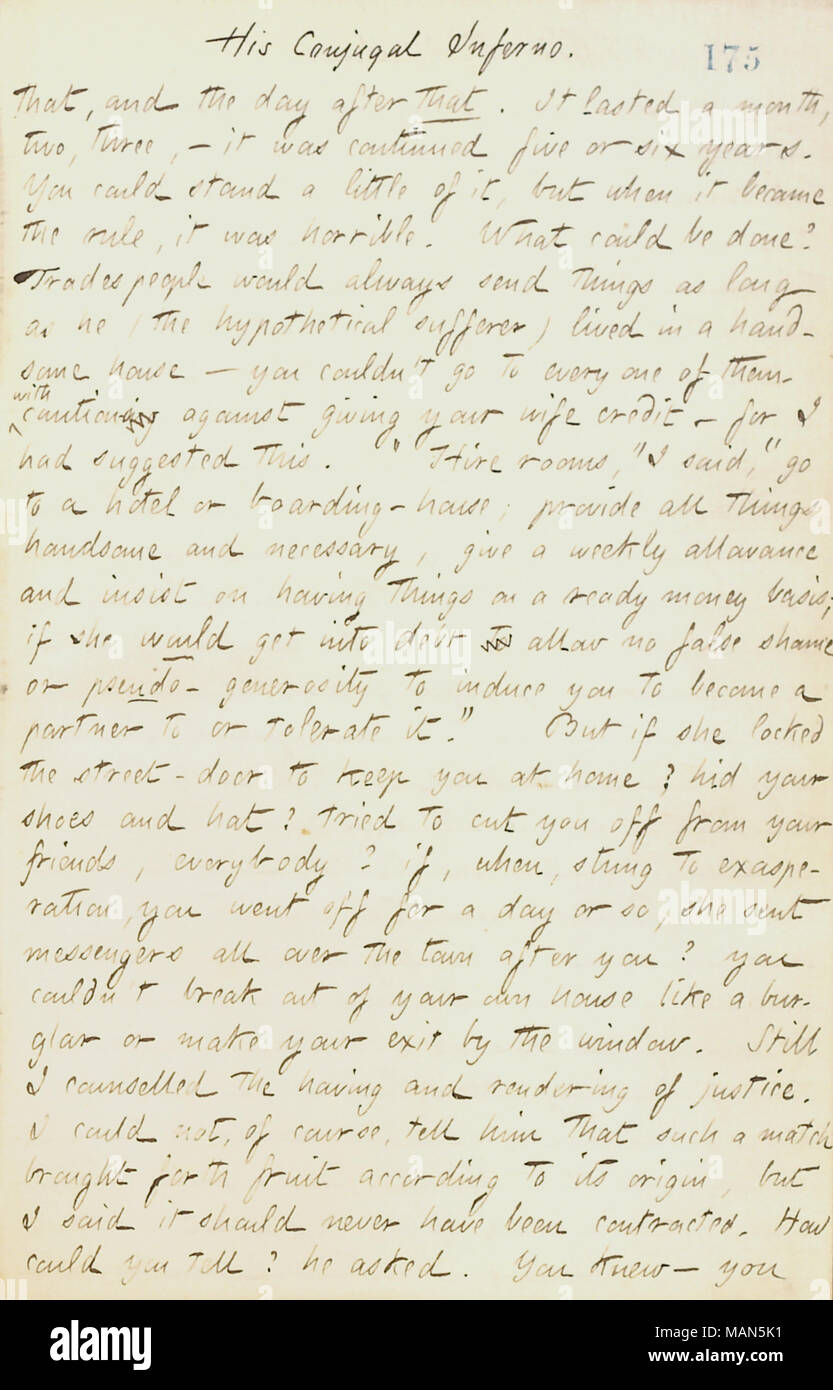 His Conjugal Inferno.
175
that, and the day after that. It lasted a month,
two, three, – it was continued five or six years.
You could stand a little of it, but when it became
the rule, it was horrible. What could be done?
Tradespeople would always send things as long
as he (the hypothetical sufferer) lived in a hand-
some house — you couldn't go to every one of them
with cautions against giving your wife credit – for I
had suggested this. "Hire rooms," I said, "go
to a hotel or boarding-house; provide all things
handsome and necessary, give a weekly allowance
and insist on having things on a ready money basis;
if she would get into debt allow no false shame
or pseudo-generosity to induce you to become a
partner to or tolerate it." But if she locked
the street-door to keep you at home? hid your
shoes and hat? tried to cut you off from your
friends, everybody? if, when, stung to exaspe-
ration, you went off for a day or so, she sent
messengers all over the town after you? you
couldn't break out of your own house like a bur-
glar or make your exit by the window. Still
I counselled the having and rendering of justice.
I could not, of course, tell him that such a match
brought forth fruit according to its origin, but
I said it should never have been contracted. How
could you tell? he asked. You knew — you
alamy
Image ID: MAN5K1
www.alamy.com